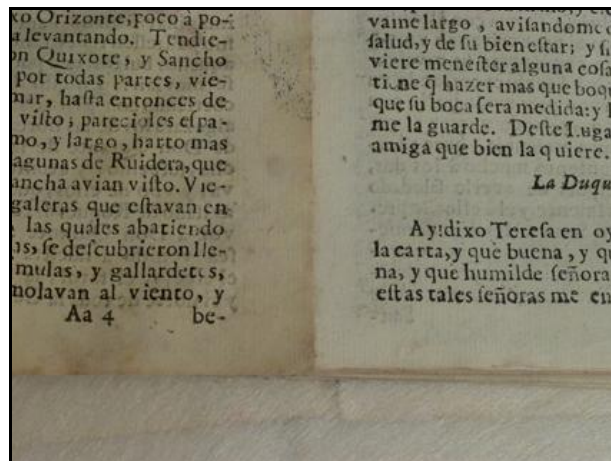 Orizonte, poco à po-
a levantando. Tendie-
Quixote, y Sancho
por todas partes, vie-
mar, hasta entonces de
visto; parecioles espa-
mo, y largo, harto mas
agunas de Ruidera, que
ancha avian visto. Vie-
galeras que estavan en
las quales abatiendo
as, se descubrieron lle-
mulas, y gallardetes,
molavan al viento, y
Aa 4 be-
vame largo, avisandome
salud, y de su bien estar; y si
viere menester alguna cosa
tiene q̃ hazer mas que boqu
que su boca sera medida: y
me la guarde. Deste Luga
amiga que bien la quiere.
La Duqu
Ay! dixo Teresa en oy
la carta, y què buena, y qu
na, y que humilde señora
estas tales señoras me en